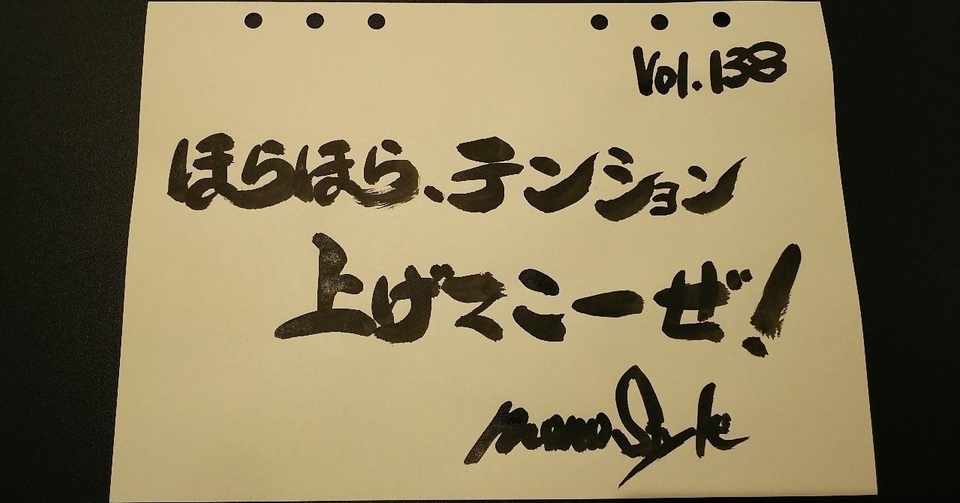 Vol.138
ほらほら、テンション
上げてこーぜ!